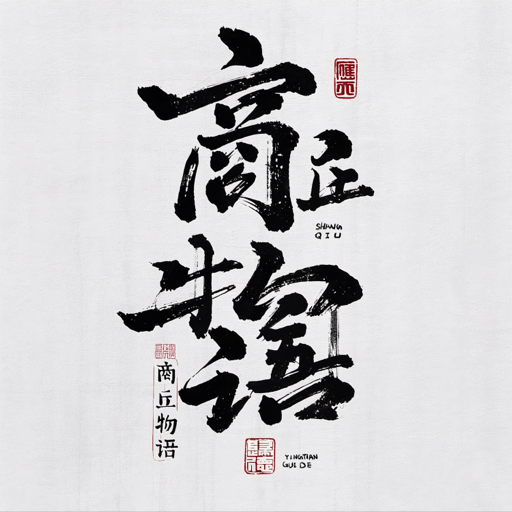 商丘
SHANG
QIU
物语
商丘物语
YINGTIAN
GUIDE
應天